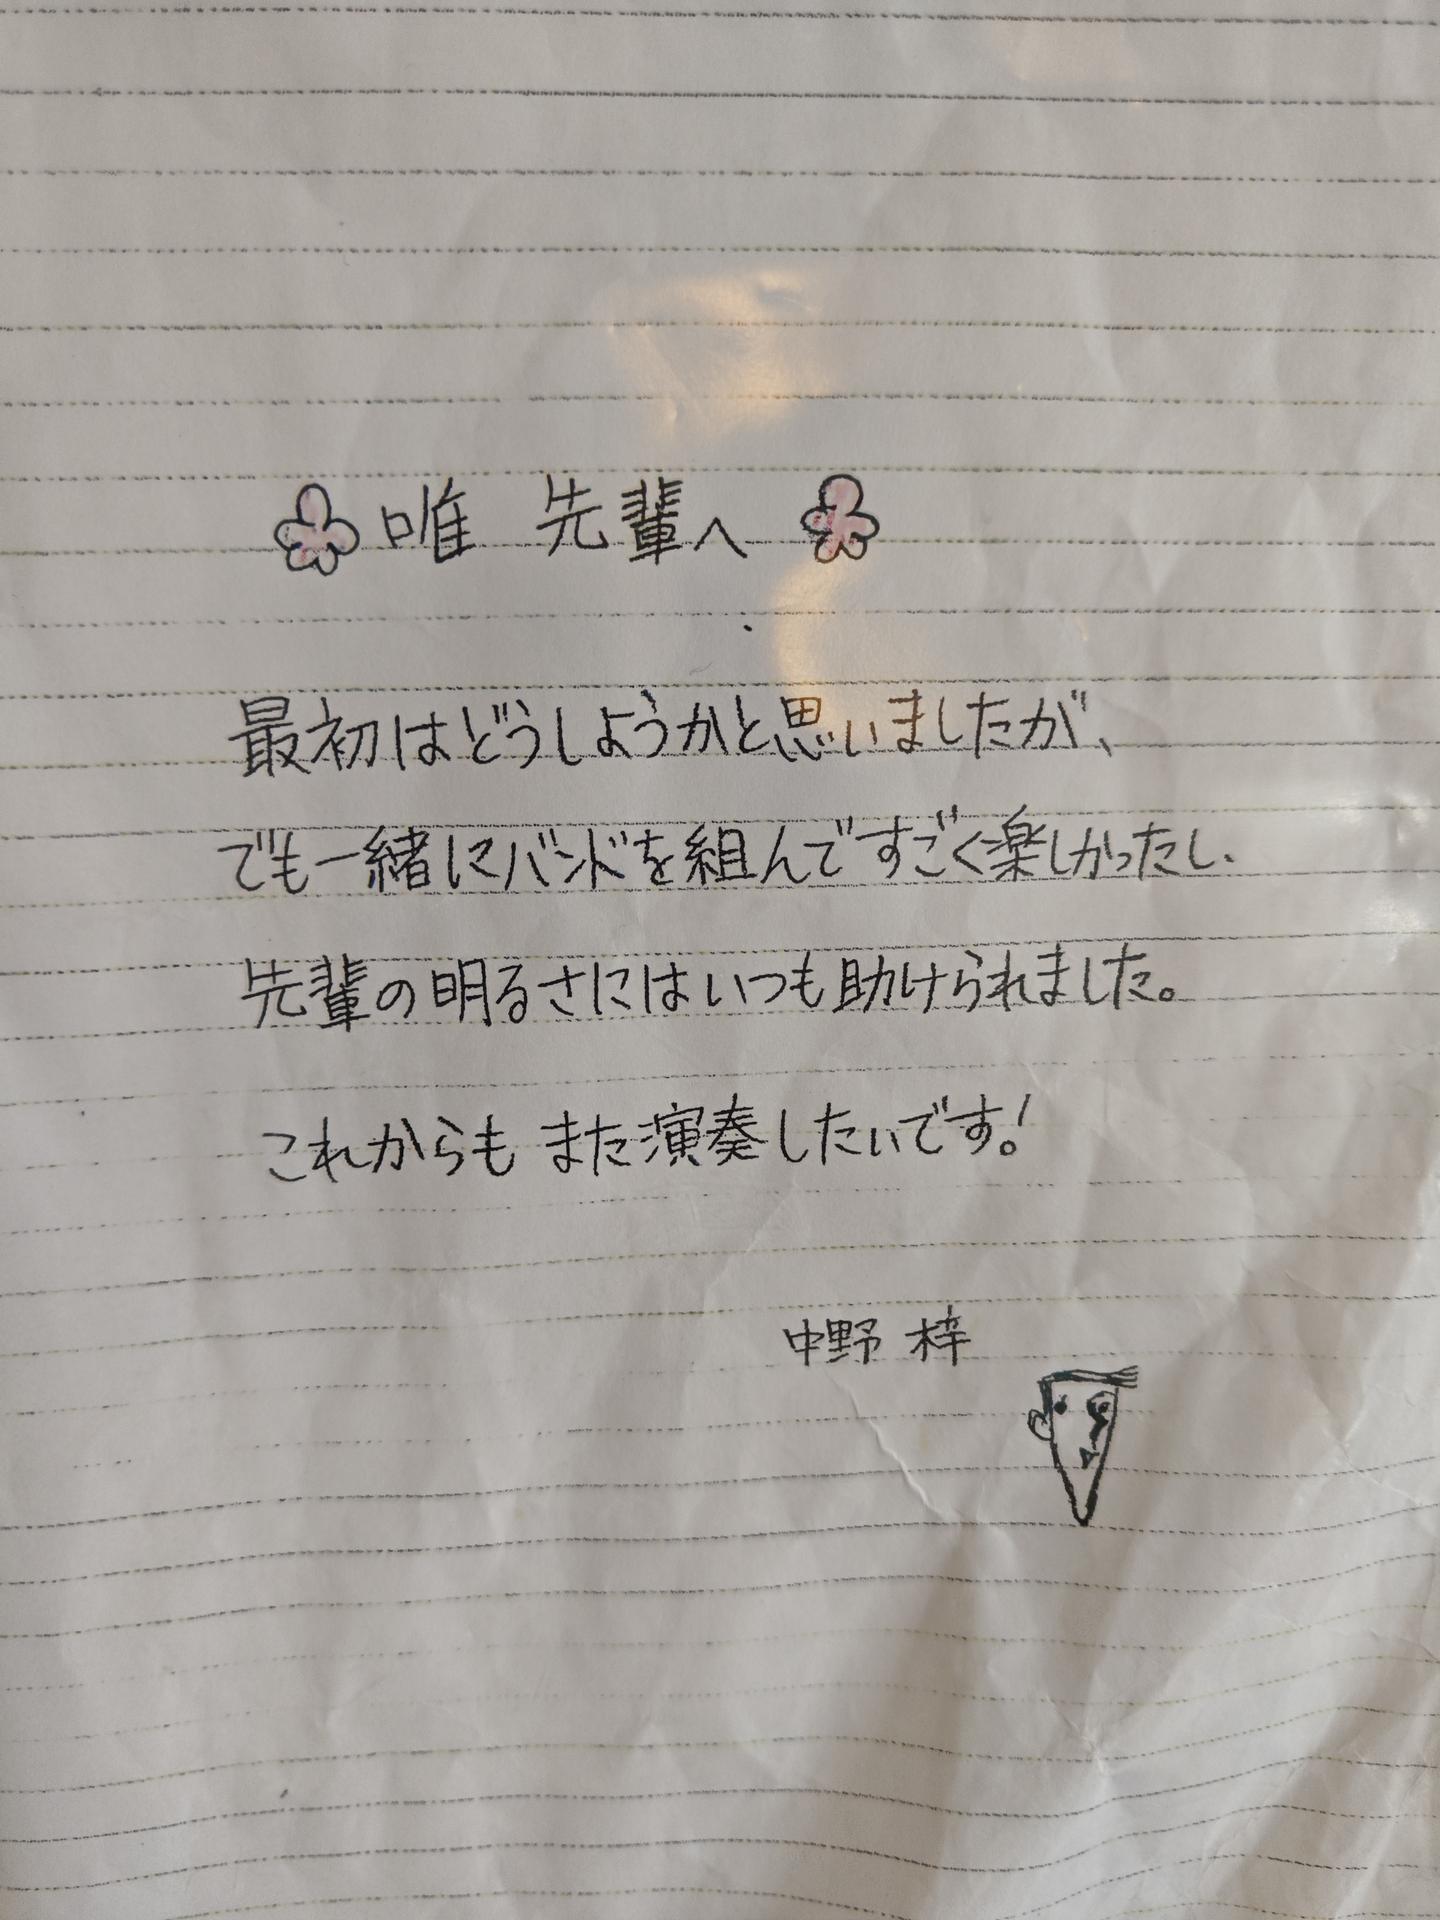 唯 先輩へ
最初はどうしようかと思いましたが、
でも一緒にバンドを組んですごく楽しかったし、
先輩の明るさにはいつも助けられました。
これからも また演奏したいです!
中野 梓